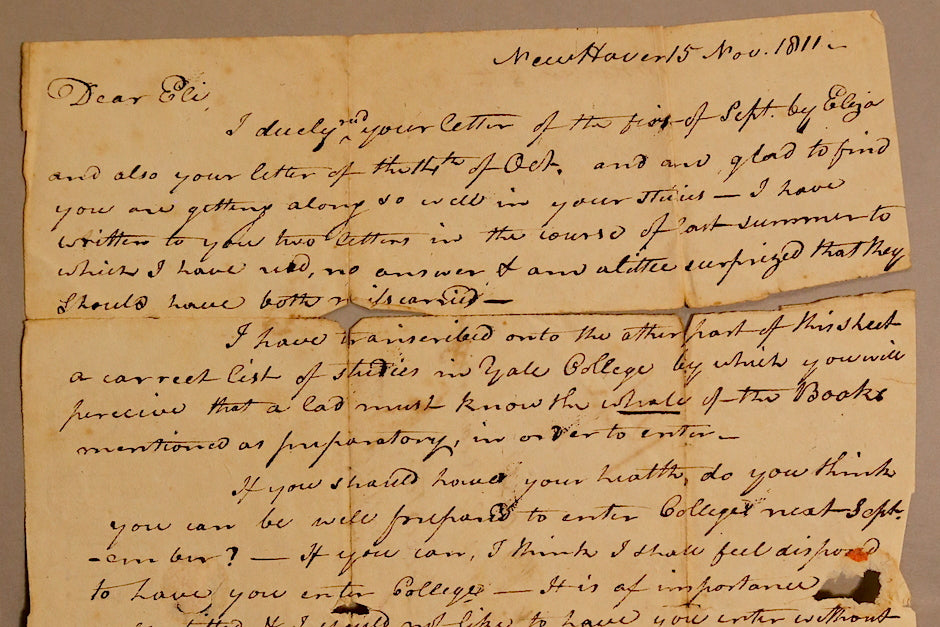 New Haven 15 Nov. 1811 –
Dear Eli,
I duely recd your letter of the first of Sept. by Eliza
and also your letter of the 14th of Oct. and am glad to find
you are getting along so well in your studies – I have
written to you two letters in the course of last summer to
which I have recd, no answer & am a little surprized that they
should have both miscarried –
I have transcribed onto the other part of this sheet
a correct list of studies in Yale College by which you will
perceive that a lad must know the whole of the Books
mentioned as preparatory, in order to enter –
If you should have your health, do you think
you can be well prepared to enter College next Sept.
-ember? – If you can, I think I shall feel disposed
to have you enter College – It is of importance
fitted & I would not like to have you enter without